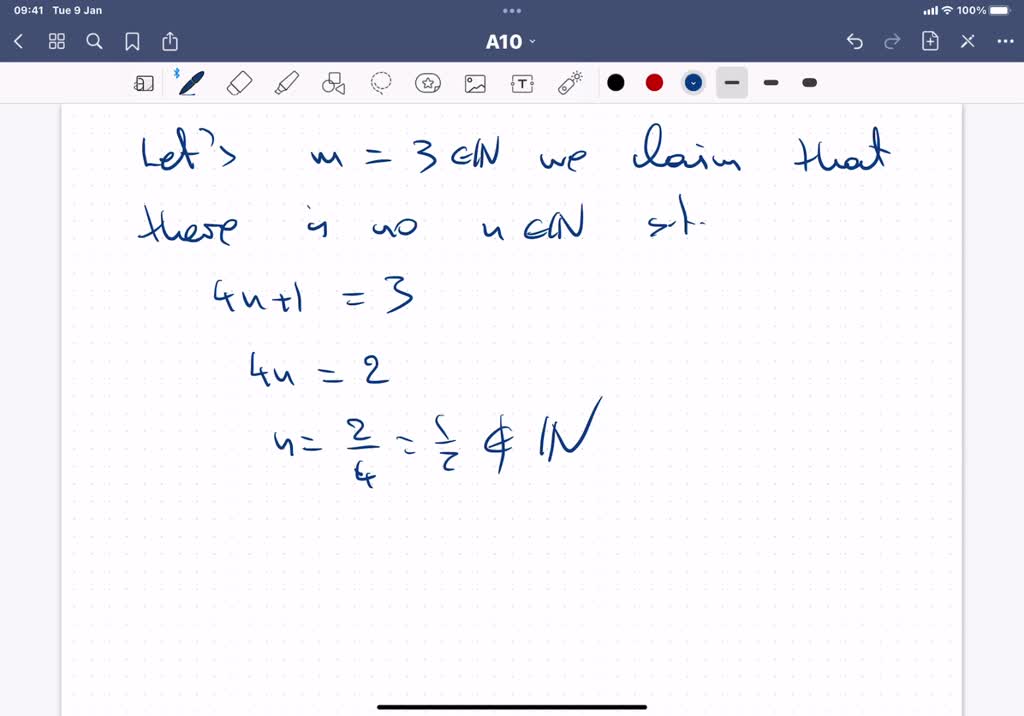 09:41 Tue 9 Jan
100%
A10
Let's m = 3 ∈ ℕ we claim that
there is no n ∈ ℕ s.t.
4n+1 = 3
4n = 2
n = 2/4 = 1/2 ∉ ℕ